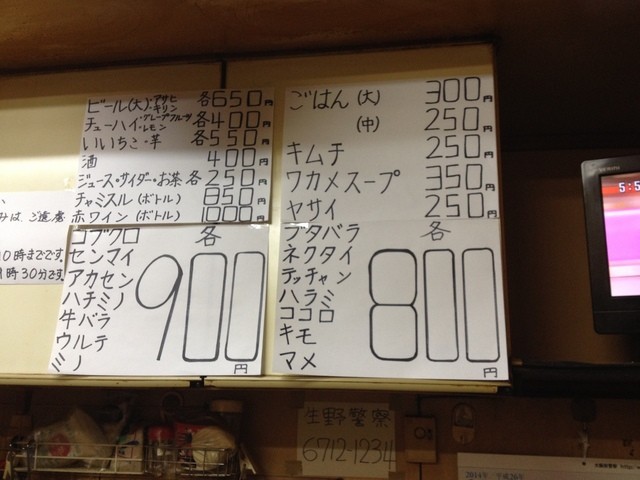 ビール(大)・アサヒ キリン 各650円
チューハイ・グレープフルーツ レモン 各400円
いいちこ・芋 各550円
酒 400円
ジュース・サイダー・お茶 各250円
チャミスル(ボトル) 850円
赤ワイン(ボトル) 1000円
みは、ご遠慮
10時までです
時30分です
ごはん (大) 300円
(中) 250円
キムチ 250円
ワカメスープ 350円
ヤサイ 250円
コブクロ
センマイ
アカセン
ハチミノ
牛バラ
ウルテ
ミノ
各
900円
ブタバラ
ネクタイ
テッチャン
ハラミ
ココロ
キモ
マメ
各
800円
5:5
生野警察
6712-1234
2014年 平成26年